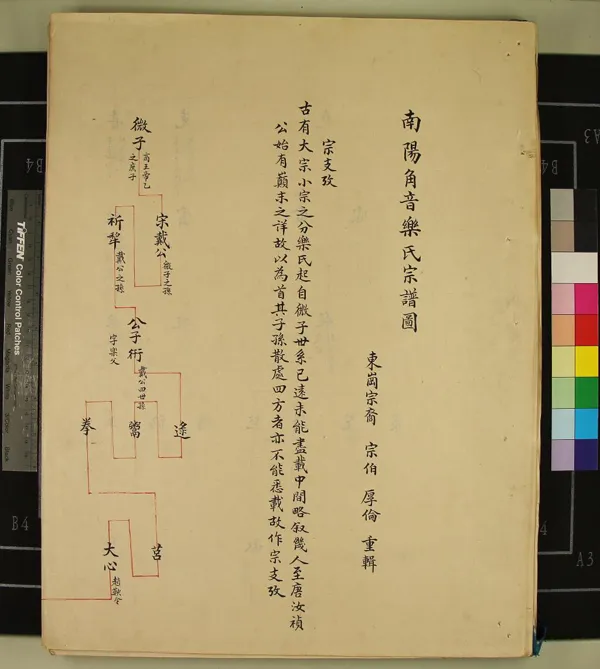 南陽角音樂氏宗譜圖
東崗宗裔 宗伯 厚倫 重輯
宗支攷
古有大宗小宗之分樂氏起自微子世系已遠未能盡載中間略叙幾人至唐汝禎
公始有巔末之詳故以為首其子孫散處四方者亦不能悉載故作宗支攷
微子 商王帝乙之庶子
宋戴公 微子之孫
祈犂 戴公之孫
公子衎 字樂父 戴公四世孫
遙
鸞
拳
莒
大心 趙歜令
TIFFEN Color Control Patches
B4
B4
A3
A3